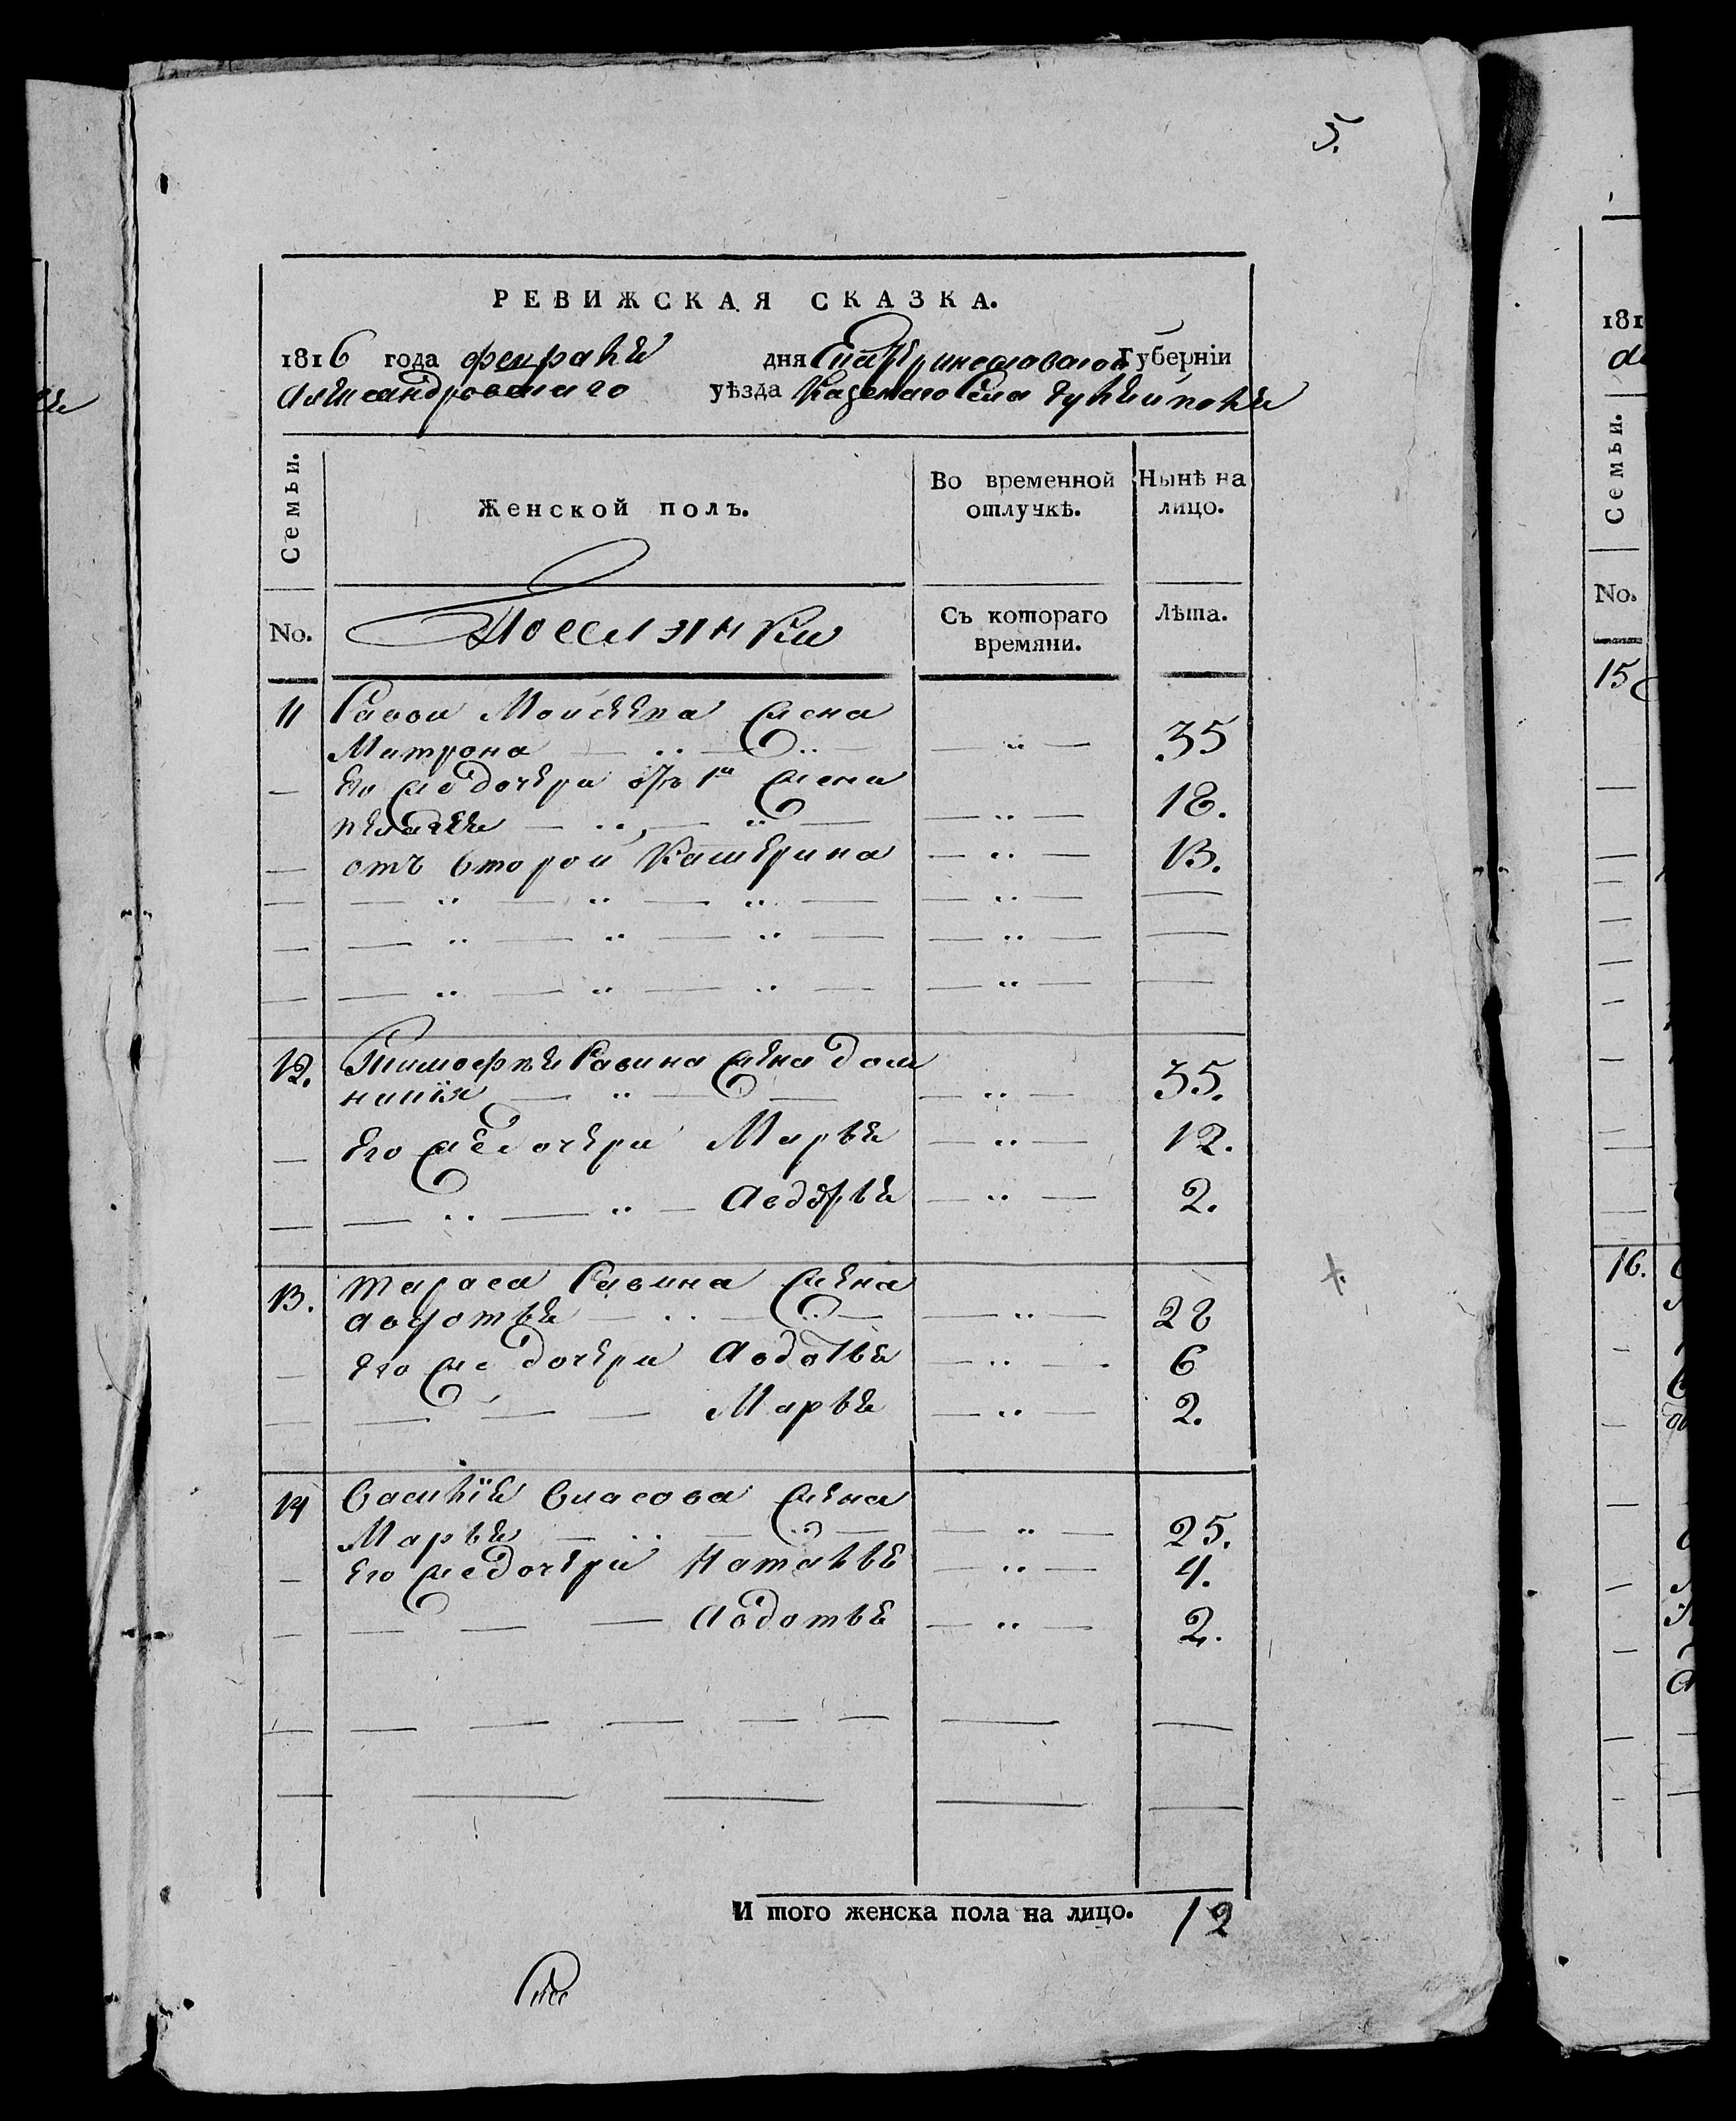 5.
РЕВИЖСКАЯ СКАЗКА.
1816 года февраля дня Екатеринославской Губерніи
Александровскаго уѣзда Казеннаго Села Гуляйполя
Семьи.
Женской полъ.
Во временной отлучкѣ.
Нынѣ на лицо.
No.
Поселянки
Съ котораго времяни.
Лѣта.
11 Савви Моисеева жена
Матрона — .. — .. — — .. — 35
— Его же дочери отъ 1й жены
Пелагея — .. — .. — — .. — 18.
— отъ второй Катерина — .. — 13.
— — .. — .. — .. — — .. — —
— — .. — .. — .. — — .. — —
— — .. — .. — .. — — .. — —
12. Тимофея Савина жена Дом
никія — .. — — — .. — 35.
— Его же дочери Марья — .. — 12.
— — .. — .. — Авдотья — .. — 2.
13. Тараса Савина жена
Авдотья — .. — .. — — .. — 28
— Его же дочери Авдотья — .. — 6
— — — — Марья — .. — 2.
14 Василія Власова жена
Марья — .. — .. — — .. — 25.
— Его же дочери Наталья — .. — 4.
— — — — Авдотья — .. — 2.
И того женска пола на лицо. 12
181
Семьи.
No.
15
16.